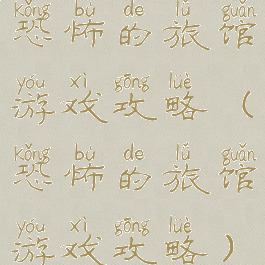 kǒng bù de lǚ guǎn
恐怖的旅馆
yóu xì gōng lüè
游戏攻略（
kǒng bù de lǚ guǎn
恐怖的旅馆
yóu xì gōng lüè
游戏攻略）